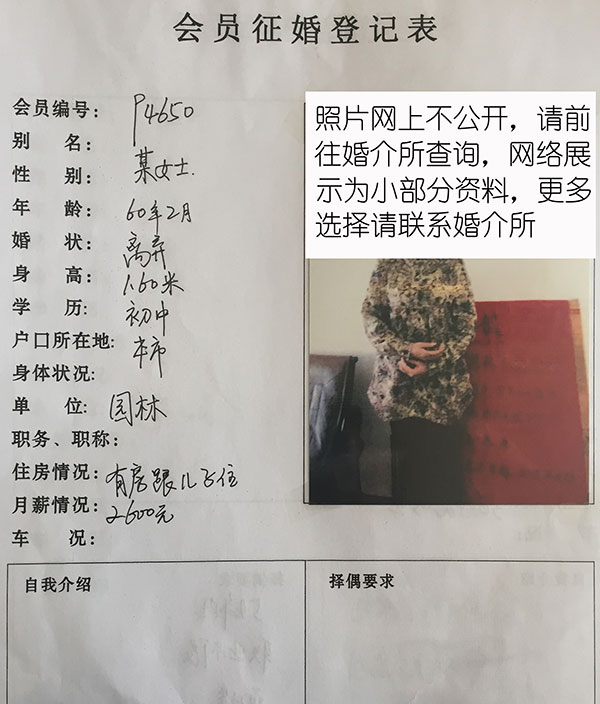 会员征婚登记表
会员编号: P4650
别 名:
性 别: 某女士.
年 龄: 60年2月
婚 状: 离异
身 高: 1.60米
学 历: 初中
户口所在地: 本市
身体状况:
单 位: 园林
职务、职称:
住房情况: 有房跟儿子住
月薪情况: 2600元
车 况:
照片网上不公开，请前
往婚介所查询，网络展
示为小部分资料，更多
选择请联系婚介所
自我介绍
择偶要求